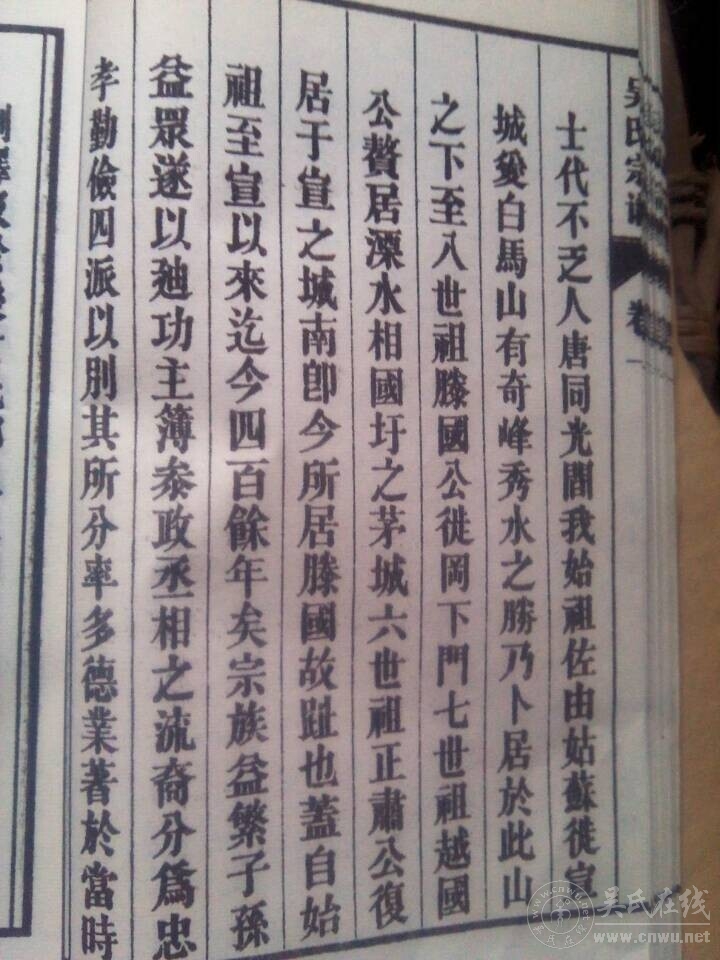 吳氏宗
卷一
士代不乏人唐同光間我始祖佐由姑蘇徙宣
城愛白馬山有奇峰秀水之勝乃卜居於此山
之下至八世祖滕國公徙岡下門七世祖越國
公贅居溧水相國圩之茅城六世祖正肅公復
居于宣之城南即今所居滕國故趾也蓋自始
祖至宣以來迄今四百餘年矣宗族益繁子孫
益眾遂以廸功主簿叅政丞相之流裔分爲忠
孝勤儉四派以別其所分率多德業著於當時
吴氏在线
www.cnwu.net